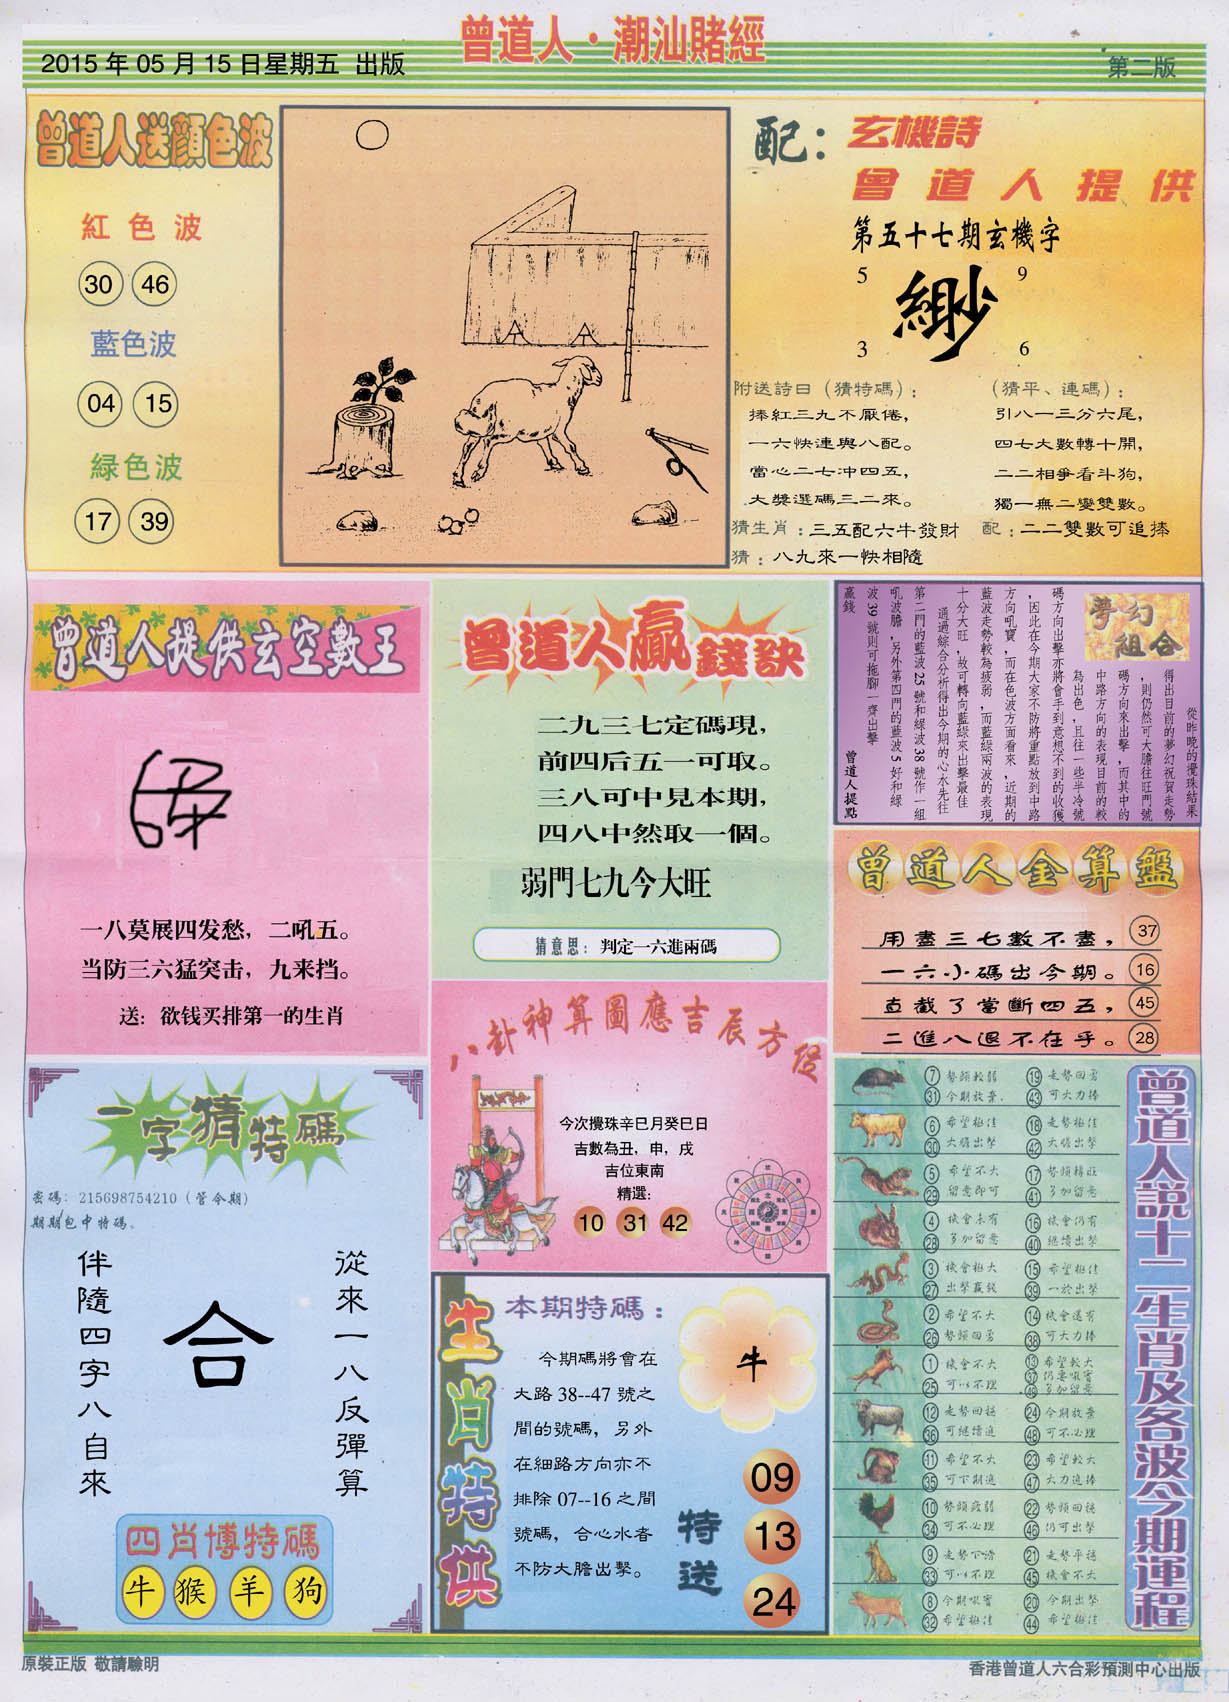 曾道人·潮汕賭經
2015年05月15日星期五 出版
第二版
曾道人送顔色波
紅色波
30 46
藍色波
04 15
緑色波
17 39
配：
玄機詩
曾道人提供
第五十七期玄機字
5 9
緲
3 6
附送詩曰（猜特碼）：
捧紅三九不厭倦，
一六快連與八配。
當心二七冲四五，
大獎選碼三二來。
猜生肖：三五配六牛發財
猜：八九來一快相隨
（猜平、連碼）：
引八一三分六尾，
四七大數轉十開，
二二相爭看斗狗，
獨一無二變雙數。
配：二二雙數可追捧
曾道人提供玄空數王
一八莫展四发愁，二吼五。
当防三六猛突击，九来挡。
送：欲钱买排第一的生肖
曾道人贏錢訣
二九三七定碼現，
前四后五一可取。
三八可中見本期，
四八中然取一個。
弱門七九今大旺
猜意思：判定一六進兩碼
夢幻組合
從昨晚的攪珠結果
得出目前的夢幻祝賀走勢
，則仍然可大膽往旺門號
碼方向來出擊，而其中的
中路方向的表現目前的較
為出色，且往一些半冷號
碼方向出擊亦將會手到意想不到的收獲
，因此在今期大家不防將重點放到中路
方向吼寶，而在色波方面看來，近期的
藍波走勢較為疲弱，而藍綠兩波的表現
十分大旺，故可轉向藍綠來出擊最佳
通過綜合分析得出今期的心水先往
第二門的藍波25號和綠波38號作一組
吼波膽，另外第四門的藍波5好和綠
波39號則可拖腳一齊出擊
贏錢
曾道人提點
曾道人金算盤
用盡三七數不盡， 37
一六小碼出今期。 16
直截了當斷四五， 45
二進八退不在乎。 28
八卦神算圖應吉辰方位
今次攪珠辛巳月癸巳日
吉數為丑，申，戌
吉位東南
精選：
10 31 42
一字猜特碼
密碼：215698754210（管令期）
期期包中特碼。
從來一八反彈算
合
伴隨四字八自來
四肖博特碼
牛 猴 羊 狗
生肖特供
本期特碼：
今期碼將會在
大路38--47號之
間的號碼，另外
在細路方向亦不
排除07--16之間
號碼，合心水者
不防大膽出擊。
牛
特送
09
13
24
曾道人說十二生肖及各波今期運程
7 勢頭較弱 19 走勢回勇
31 今期放棄. 43 可大力捧
6 希望極佳 18 走勢極佳
30 大膽出擊 42 大膽出擊
5 希望不大 17 勢頭轉旺
29 留意即可 41 多加留意
4 機會未有 16 機會仍有
28 多加留意 40 繼續出擊
3 機會極大 15 希望極佳
27 出擊贏錢 39 一於出擊
2 希望不大 14 機會還有
26 勢頭回勇 38 可大力捧
1 機會不大 13 希望較大
25 可以不理 37 仍要吸寶
49 多加留意
12 走勢回穩 24 今期放棄
36 可繼續追 48 可不必理
11 希望不大 23 希望較大
35 可下期追 47 大力追捧
10 勢頭疲弱 22 勢頭回穩
34 可不必理 46 仍可出擊
9 走勢下滑 21 走勢平穩
33 可以不理 45 機會不大
8 今期吸寶 20 今期出擊
32 希望極佳 44 希望極佳
原裝正版 敬請驗明
香港曾道人六合彩預測中心出版